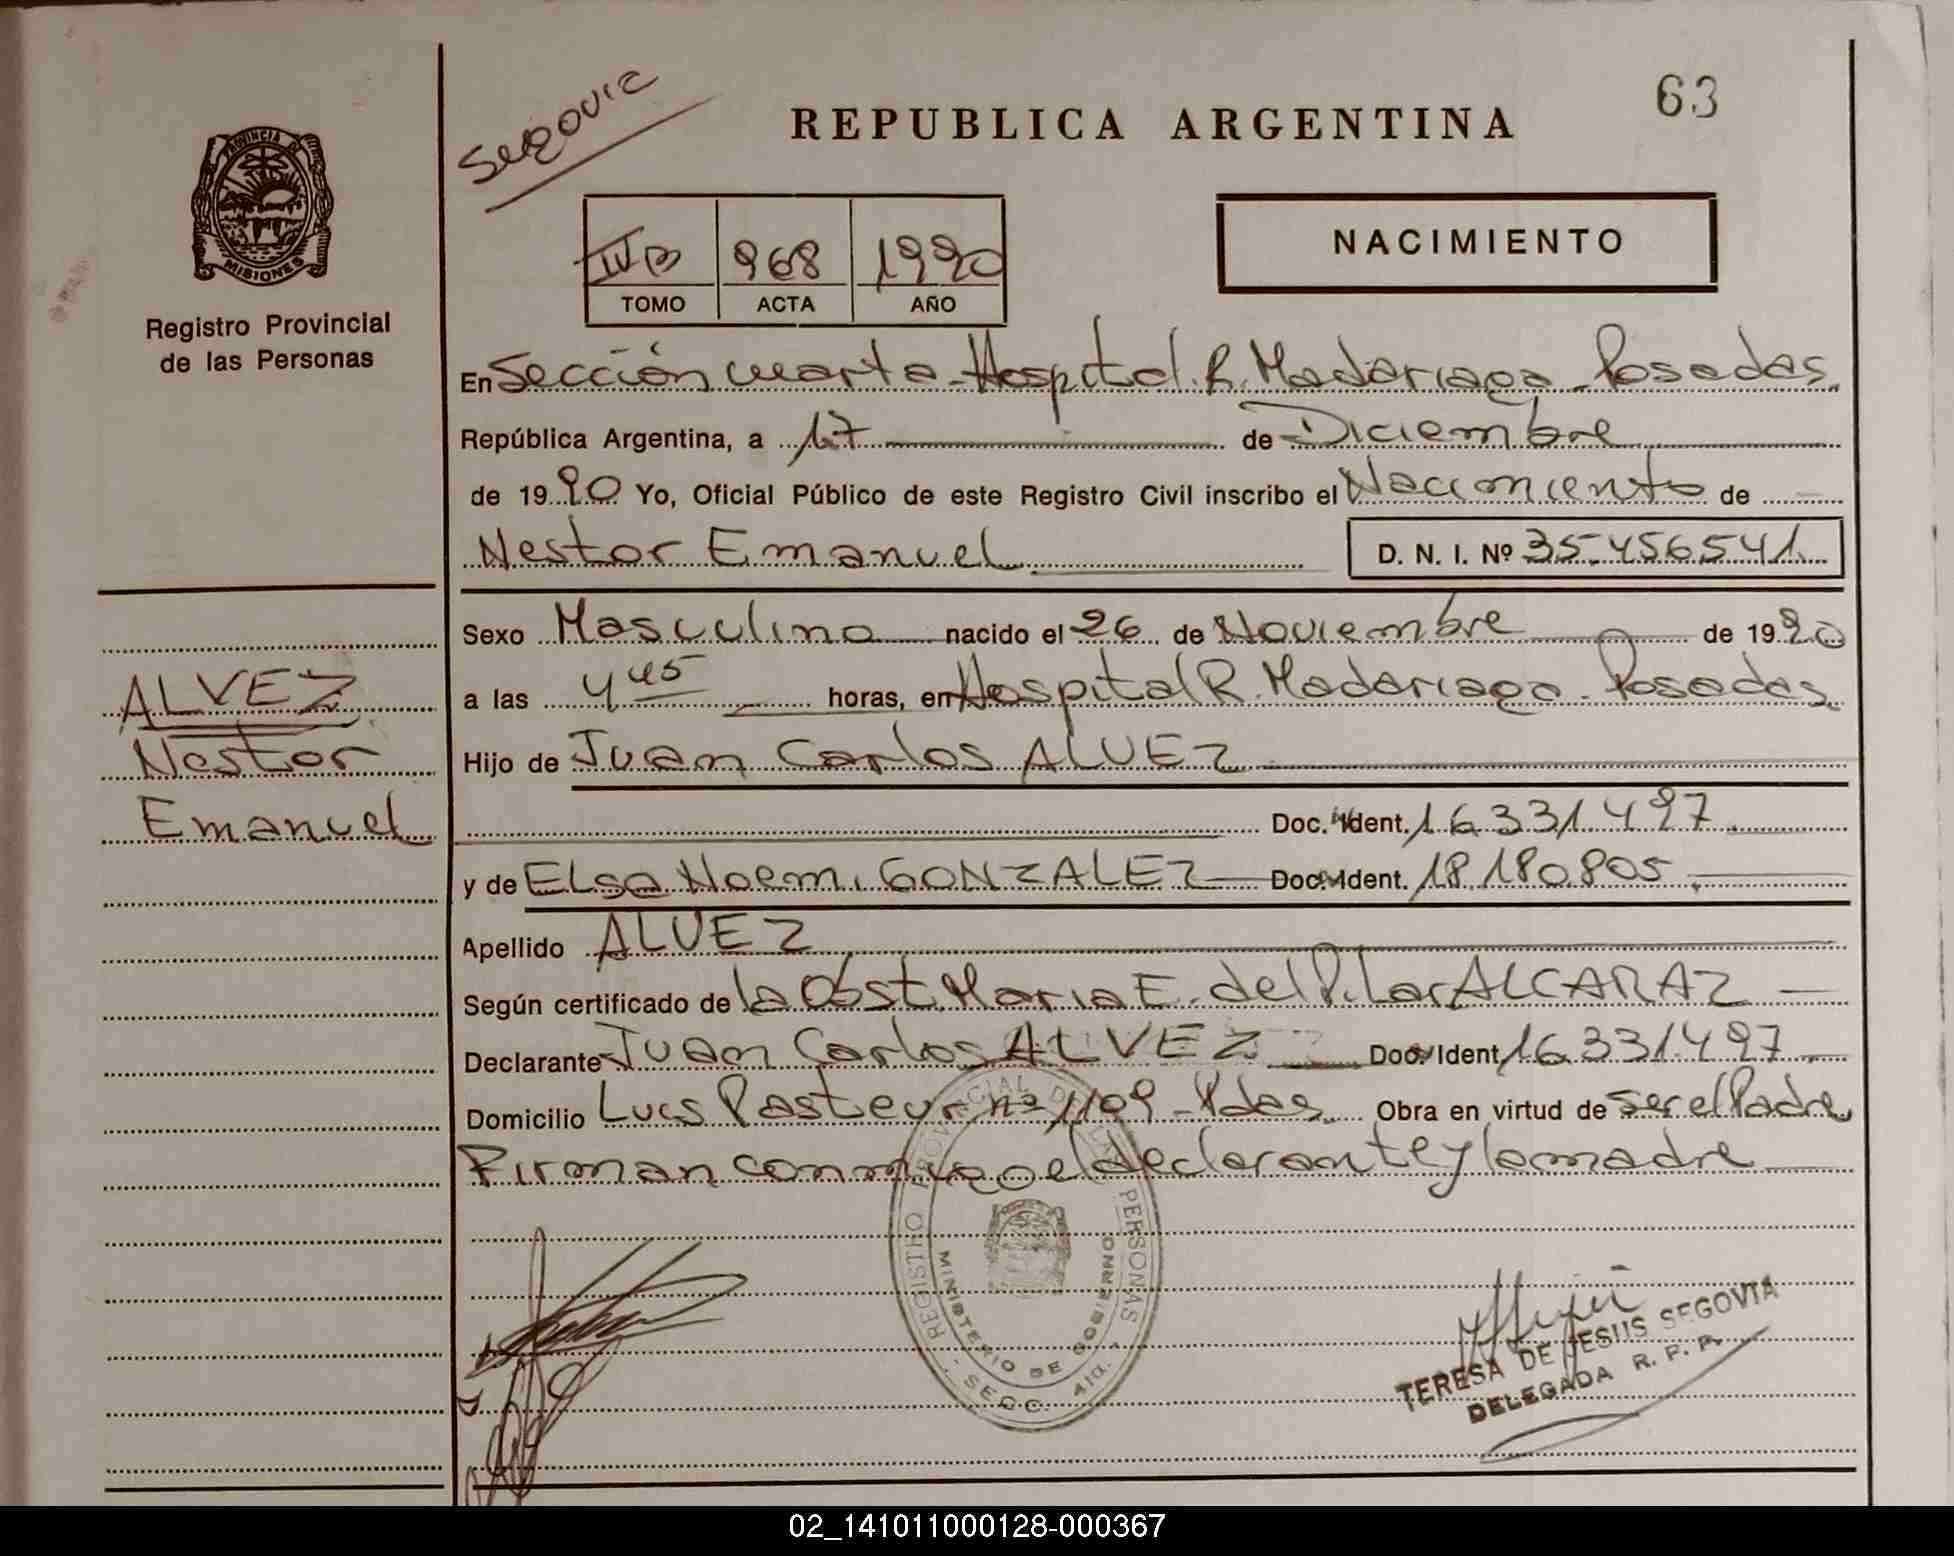 Segovia
REPUBLICA ARGENTINA
63
PROVINCIA DE
MISIONES
Registro Provincial
de las Personas
IVB 968 1990
TOMO ACTA AÑO
NACIMIENTO
En Sección cuarta - Hospital R. Madariaga - Posadas
República Argentina, a 17 de Diciembre
de 1990 Yo, Oficial Público de este Registro Civil inscribo el Nacimiento de
Nestor Emanuel D. N. I. Nº 35.456541
Sexo Masculino nacido el 26 de Noviembre de 1990
a las 4 45 horas, en Hospital R. Madariaga - Posadas
Hijo de Juan Carlos ALVEZ
Doc. Ident. 16.331.497
y de Elsa Noemi GONZALEZ Doc. Ident. 18.180.805
Apellido ALVEZ
Según certificado de la Obst. Maria E. del Pilar ALCARAZ
Declarante Juan Carlos ALVEZ Doc. Ident. 16.331.497
Domicilio Luis Pasteur nº 1109 - Pdas Obra en virtud de ser el Padre
Firman conmigo el declarante y la madre
ALVEZ
Nestor
Emanuel
REGISTRO PROVINCIAL DE LAS PERSONAS
MINISTERIO DE GOBIERNO
SECC. 4ta.
TERESA DE JESUS SEGOVIA
DELEGADA R. P. P.
02_141011000128-000367